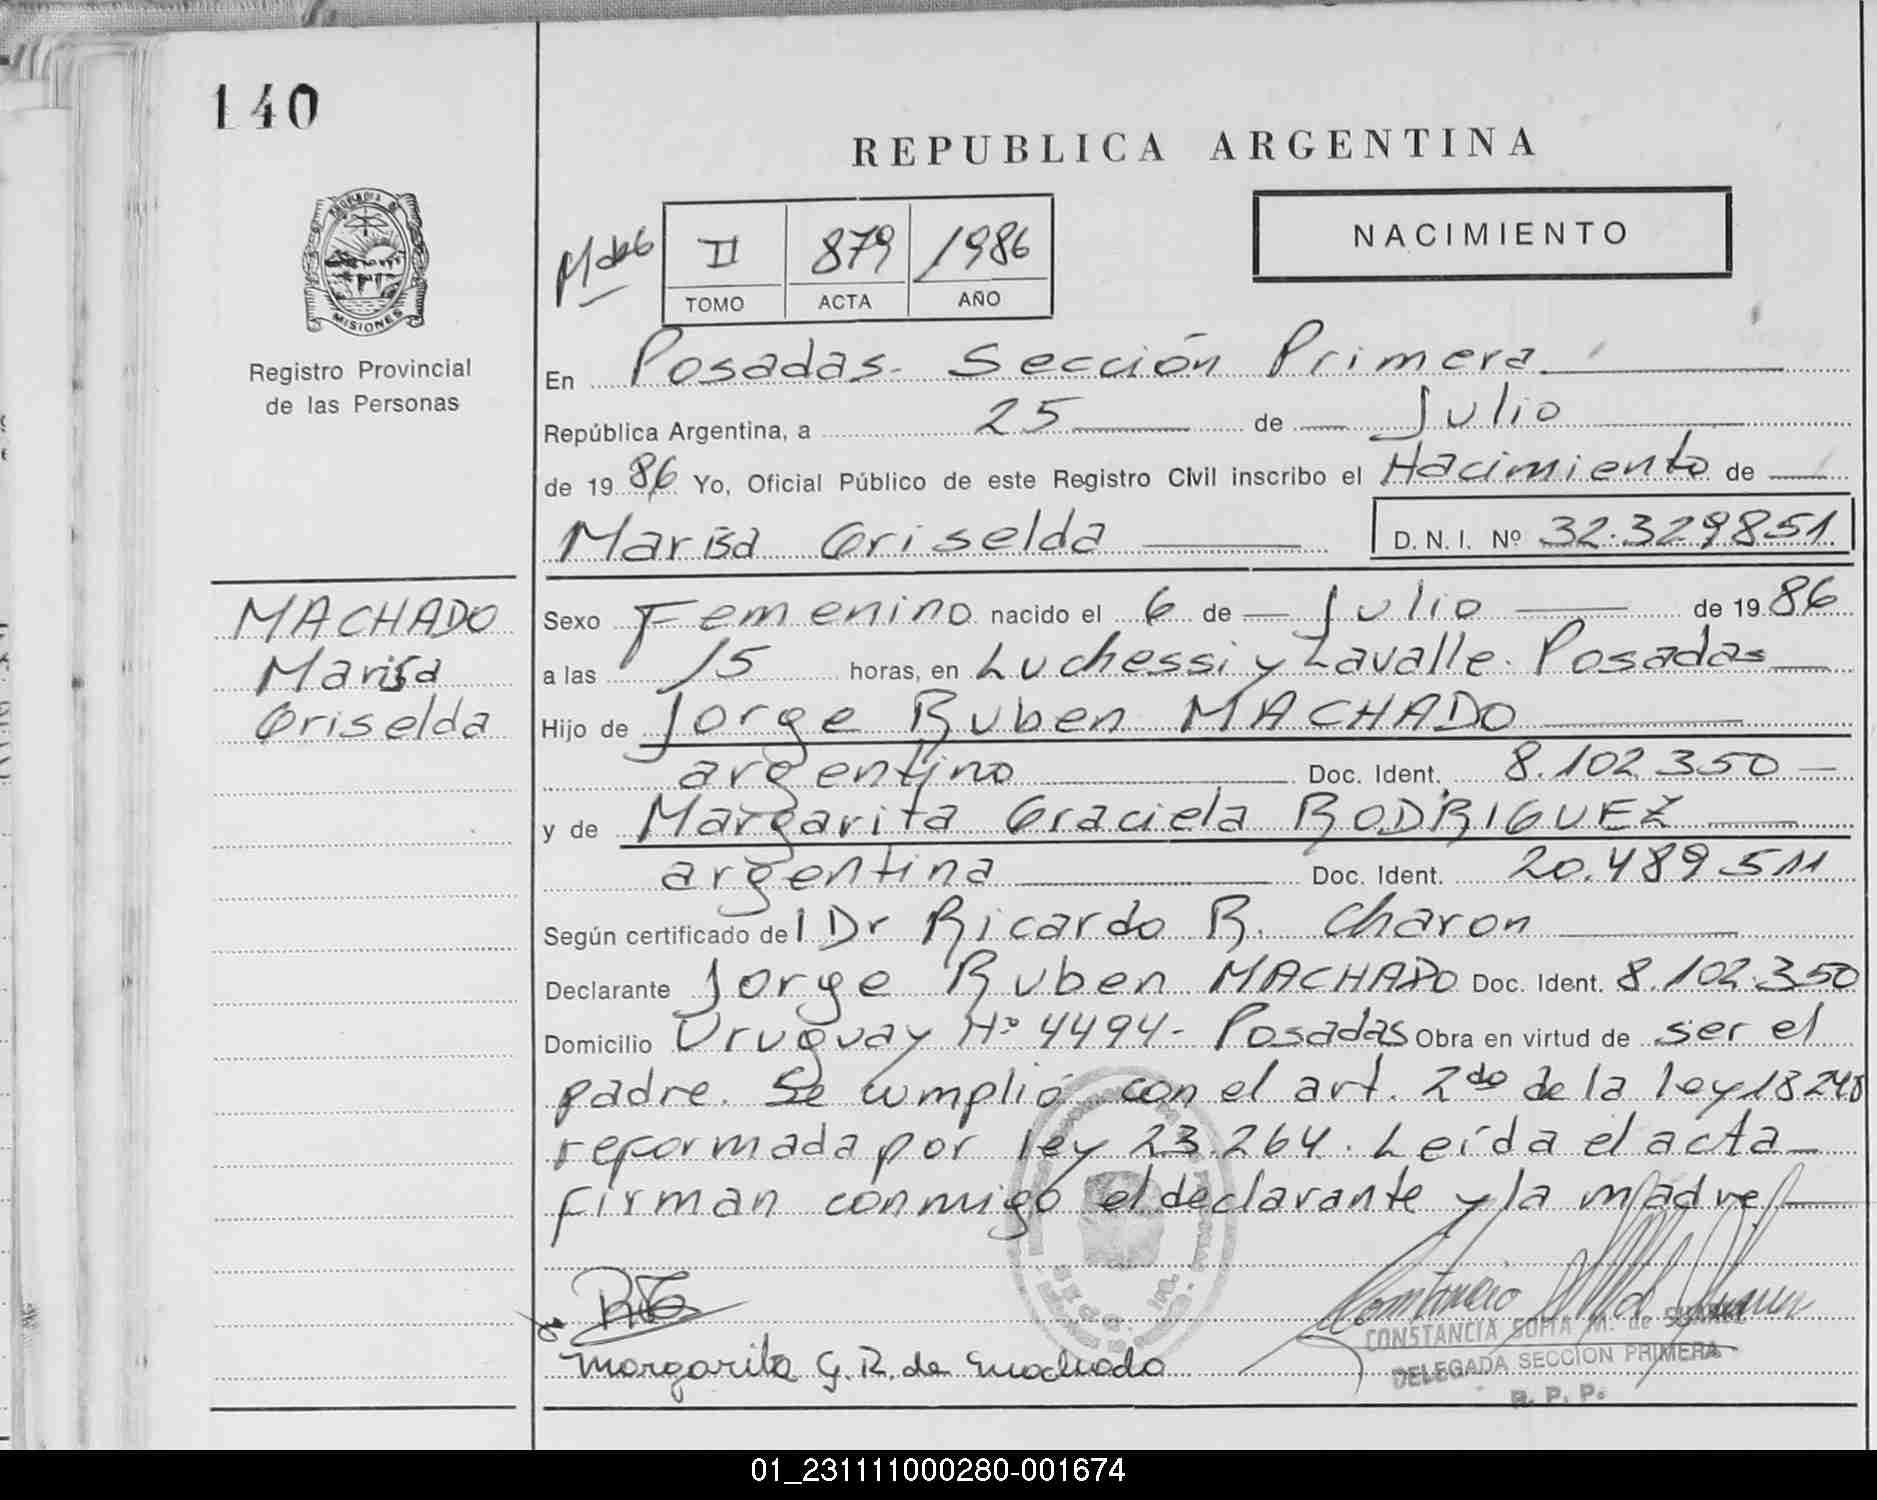 140
REPUBLICA ARGENTINA
NACIMIENTO
II 879 1986
TOMO ACTA AÑO
MISIONES
Registro Provincial
de las Personas
En Posadas. Sección Primera
República Argentina, a 25 de Julio
de 1986 Yo, Oficial Público de este Registro Civil inscribo el Nacimiento de
Marisa Griselda D. N. I. Nº 32.329851
MACHADO
Marisa
Griselda
Sexo Femenino nacido el 6 de Julio de 1986
a las 15 horas, en Luchessi y Lavalle. Posadas
Hijo de Jorge Ruben MACHADO
argentino Doc. Ident. 8.102.350
y de Margarita Graciela RODRIGUEZ
argentina Doc. Ident. 20.489511
Según certificado del Dr Ricardo R. Charon
Declarante Jorge Ruben MACHADO Doc. Ident. 8.102.350
Domicilio Uruguay Nº 4494- Posadas Obra en virtud de ser el
padre. Se cumplió con el art. 2do de la ley 18248
reformada por ley 23.264. Leída el acta
firman conmigo el declarante y la madre
Margarita G. R. de Machado
CONSTANCIA SOFIA M. de
DELEGADA SECCION PRIMERA
R. P. P.
01_231111000280-001674